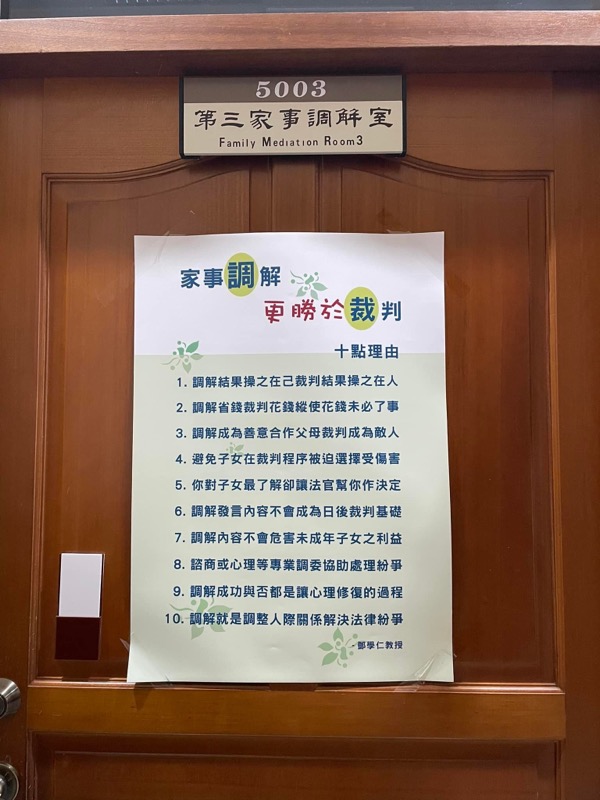 5003
第三家事調解室
Family Mediation Room3
家事調解
更勝於裁判
十點理由
1. 調解結果操之在己裁判結果操之在人
2. 調解省錢裁判花錢縱使花錢未必了事
3. 調解成為善意合作父母裁判成為敵人
4. 避免子女在裁判程序被迫選擇受傷害
5. 你對子女最了解卻讓法官幫你作決定
6. 調解發言內容不會成為日後裁判基礎
7. 調解內容不會危害未成年子女之利益
8. 諮商或心理等專業調委協助處理紛爭
9. 調解成功與否都是讓心理修復的過程
10. 調解就是調整人際關係解決法律紛爭
-鄧學仁教授